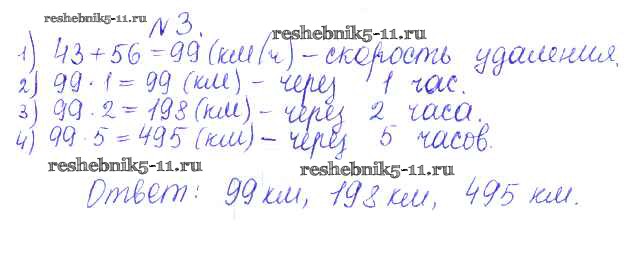 reshebnik5-11.ru
reshebnik5-11.ru
№3.
1) 43+56=99 (км/ч) – скорость удаления.
2) 99·1=99 (км) – через 1 час.
3) 99·2=198 (км) – через 2 часа.
4) 99·5=495 (км) – через 5 часов.
reshebnik5-11.ru
reshebnik5-11.ru
Ответ: 99 км, 198 км, 495 км.